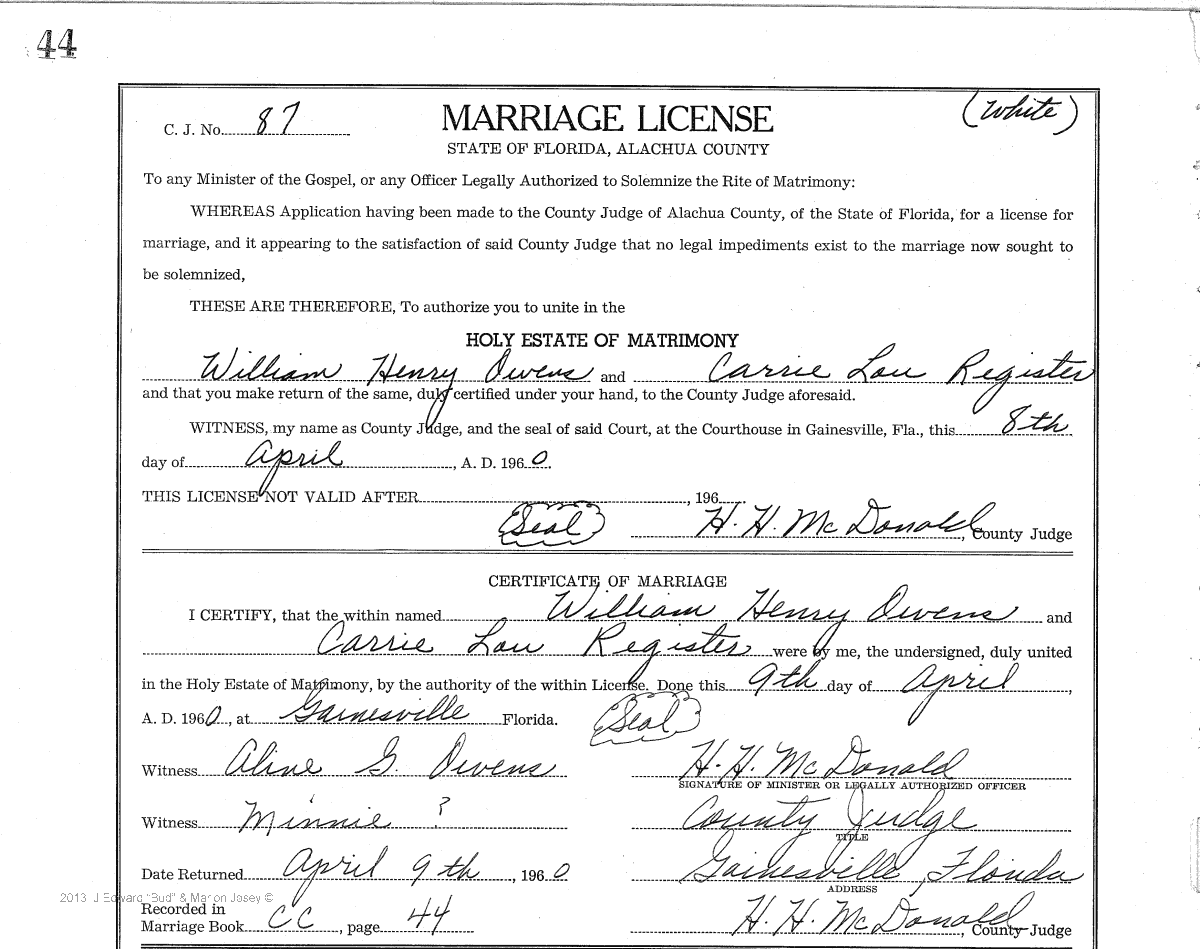 44
C. J. No. 87
MARRIAGE LICENSE
(White)
STATE OF FLORIDA, ALACHUA COUNTY
To any Minister of the Gospel, or any Officer Legally Authorized to Solemnize the Rite of Matrimony:
WHEREAS Application having been made to the County Judge of Alachua County, of the State of Florida, for a license for
marriage, and it appearing to the satisfaction of said County Judge that no legal impediments exist to the marriage now sought to
be solemnized,
THESE ARE THEREFORE, To authorize you to unite in the
HOLY ESTATE OF MATRIMONY
William Henry Owens and Carrie Lou Register
and that you make return of the same, duly certified under your hand, to the County Judge aforesaid.
WITNESS, my name as County Judge, and the seal of said Court, at the Courthouse in Gainesville, Fla., this 8th
day of April, A. D. 1960.
THIS LICENSE NOT VALID AFTER, 196
(Seal) H. H. McDonald, County Judge
CERTIFICATE OF MARRIAGE
I CERTIFY, that the within named William Henry Owens and
Carrie Lou Register were by me, the undersigned, duly united
in the Holy Estate of Matrimony, by the authority of the within License. Done this 9th day of April,
A. D. 1960, at Gainesville Florida. (Seal)
Witness Aline G. Owens H. H. McDonald
SIGNATURE OF MINISTER OR LEGALLY AUTHORIZED OFFICER
Witness Minnie ? County Judge
TITLE
Date Returned April 9th, 1960 Gainesville, Florida
ADDRESS
2013 J Edward "Bud" & Marion Josey ©
Recorded in
Marriage Book CC, page 44 H. H. McDonald, County Judge